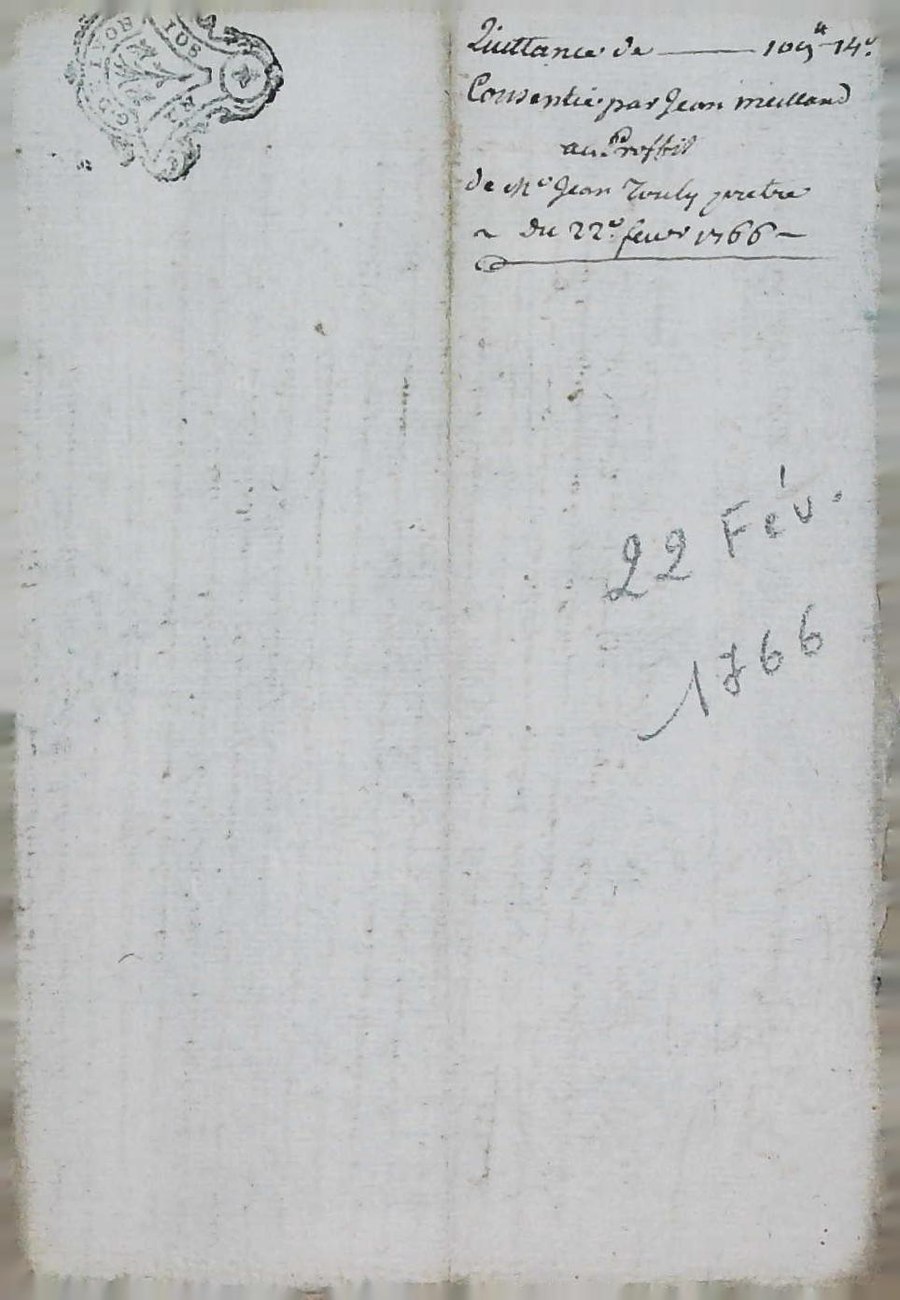 Quittance de ——— 109ᵗᵗ 14ˢ
Consentie par Jean meilland
au Proffit
de Mᵉ Jean pretre
~ du 22ᵉ fevr 1766 ~
22 Fév.
1766